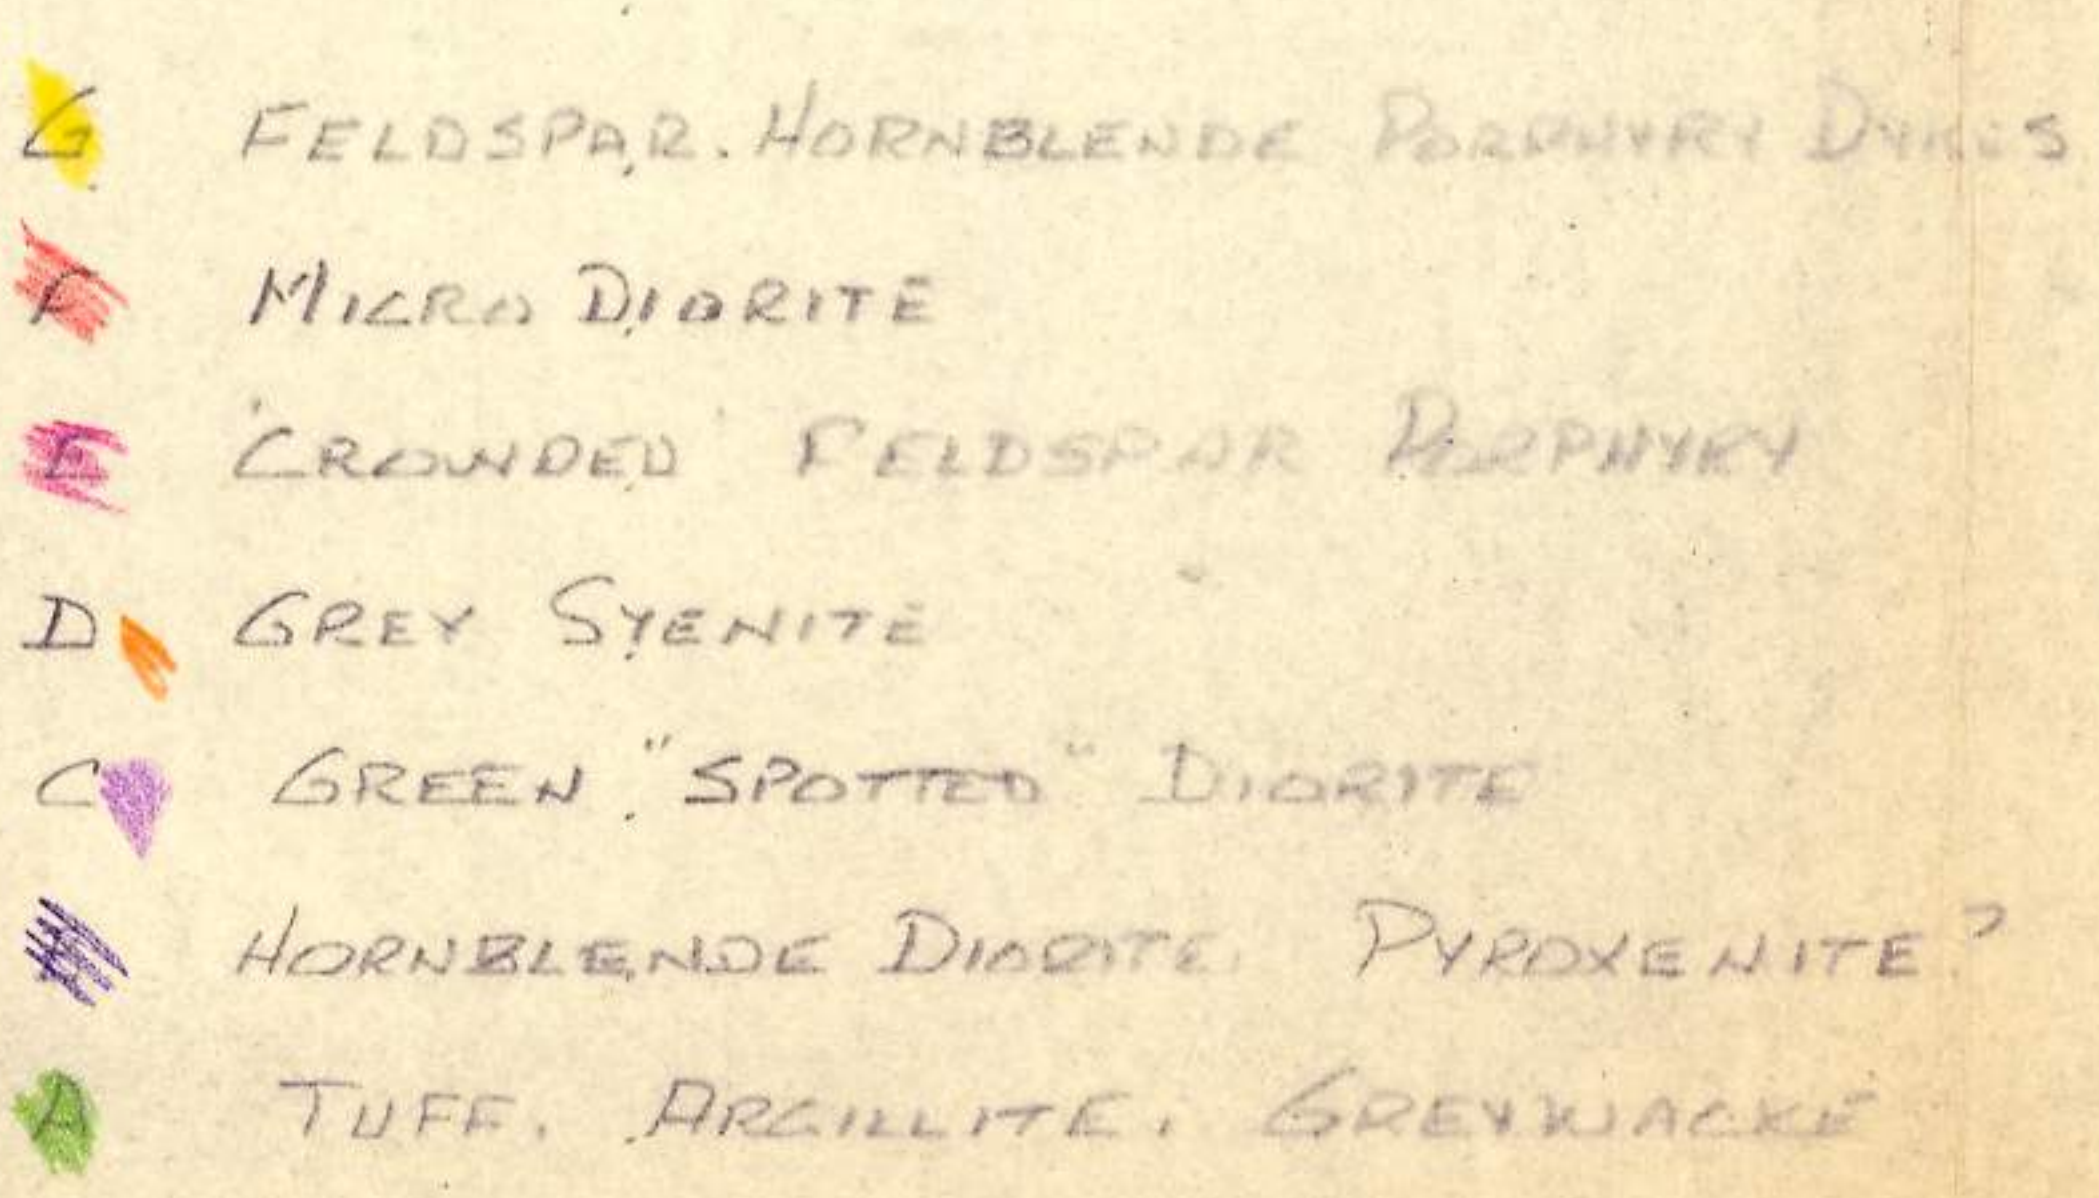 G FELDSPAR. HORNBLENDE PORPHYRY DYKES
F MICRO DIORITE
E 'CROWDED' FELDSPAR PORPHYRY
D GREY SYENITE
C GREEN "SPOTTED" DIORITE
B HORNBLENDE DIORITE, PYROXENITE?
A TUFF, ARGILLITE, GREYWACKE